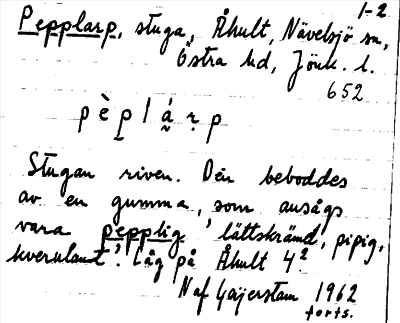 1-2
Pepplarp, stuga, Åhult, Nävelsjö sn,
Östra hd, Jönk. l.
652
pèp̱lá̰ṛp
Stugan riven. Den beboddes
av en gumma, som ansågs
vara pepplig 'lättskrämd, pipig,
kverulant'. Låg på Åhult 4²
N af Geijerstam 1962
forts.